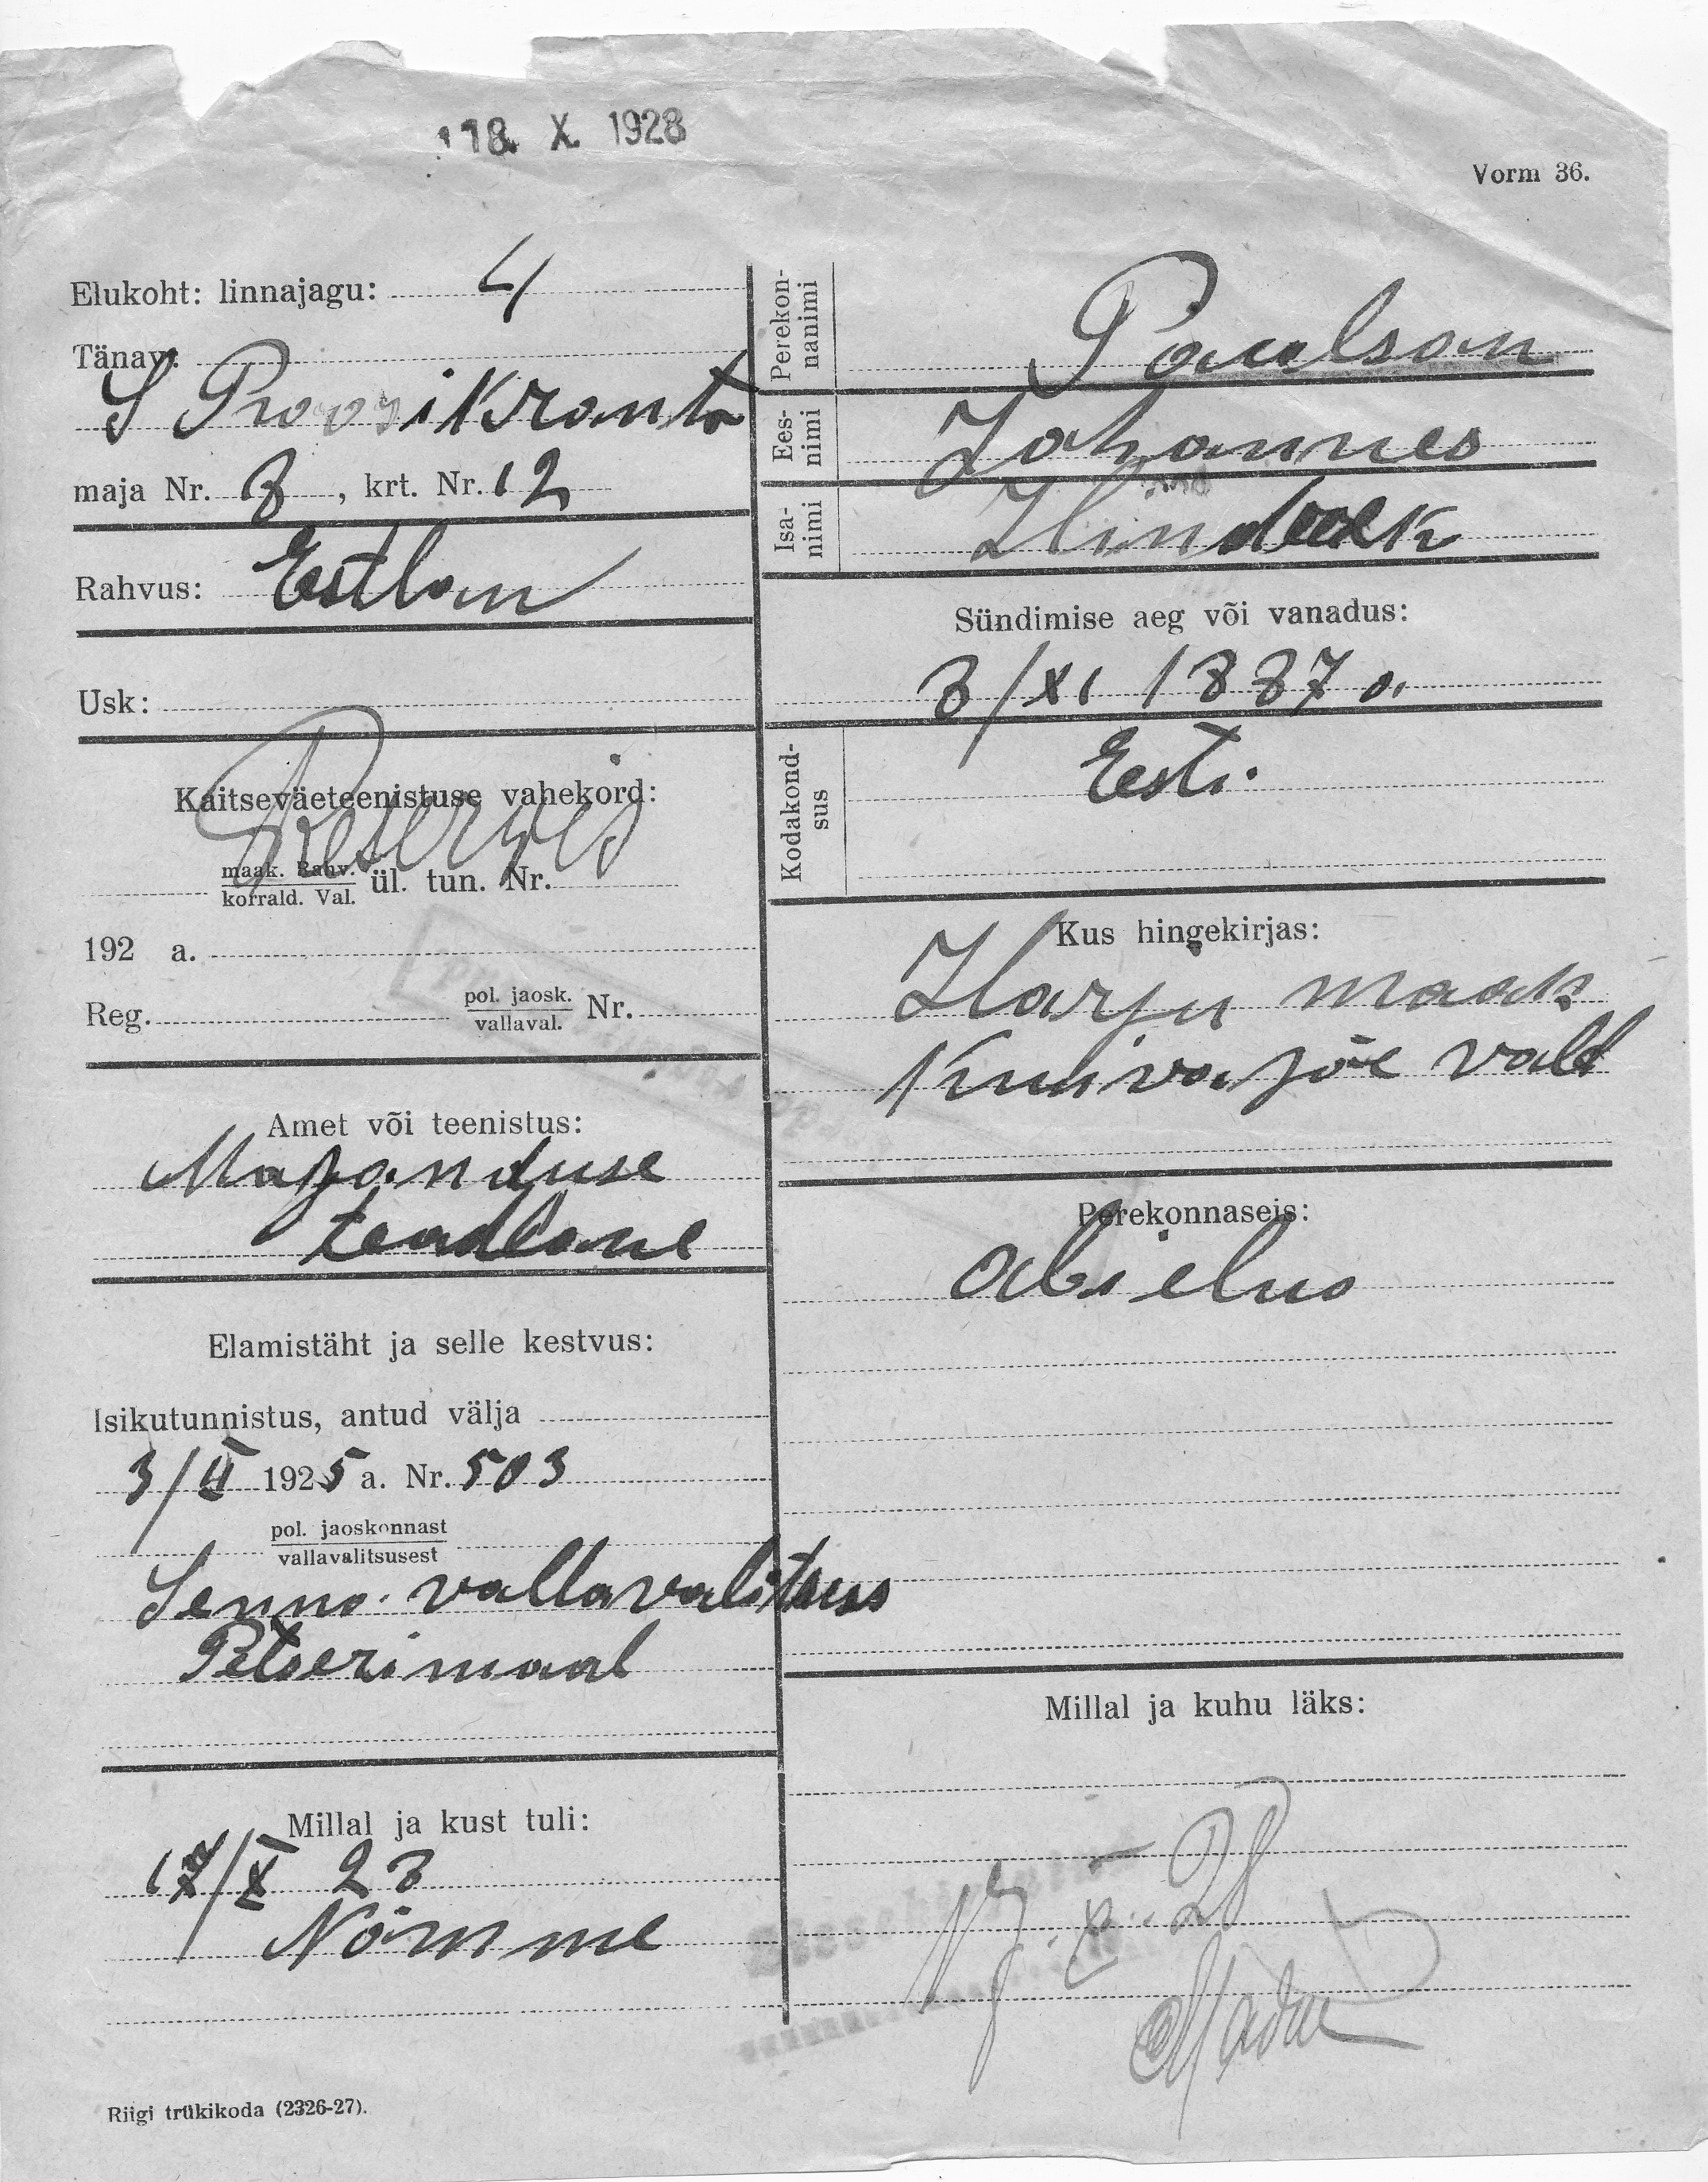 18. X. 1928
Vorm 36.
Elukoht: linnajagu: 4
Tänav:
S Roosikranta
maja Nr. 8, krt. Nr. 12
Rahvus: Estlan
Usk:
Kaitseväeteenistuse vahekord:
Reservis
maak. Rahv.
korrald. Val. ül. tun. Nr.
192 a.
Reg. pol. jaosk.
vallaval. Nr.
Amet või teenistus:
Majanduse
teadlane
Elamistäht ja selle kestvus:
Isikutunnistus, antud välja
3/II 1925 a. Nr. 503
pol. jaoskonnast
vallavalitsusest
Senno vallavalitsus
Petserimaal
Millal ja kust tuli:
17/X 28
Nõmme
Riigi trükikoda (2326-27).
Perekon-
nanimi Paulson
Ees-
nimi Johannes
Isa-
nimi Hindrek
Sündimise aeg või vanadus:
8/XI 1887 a.
Kodakond-
sus Eesti.
Kus hingekirjas:
Harju maak
Kuivajõe vald
Perekonnaseis:
abielus
Millal ja kuhu läks: